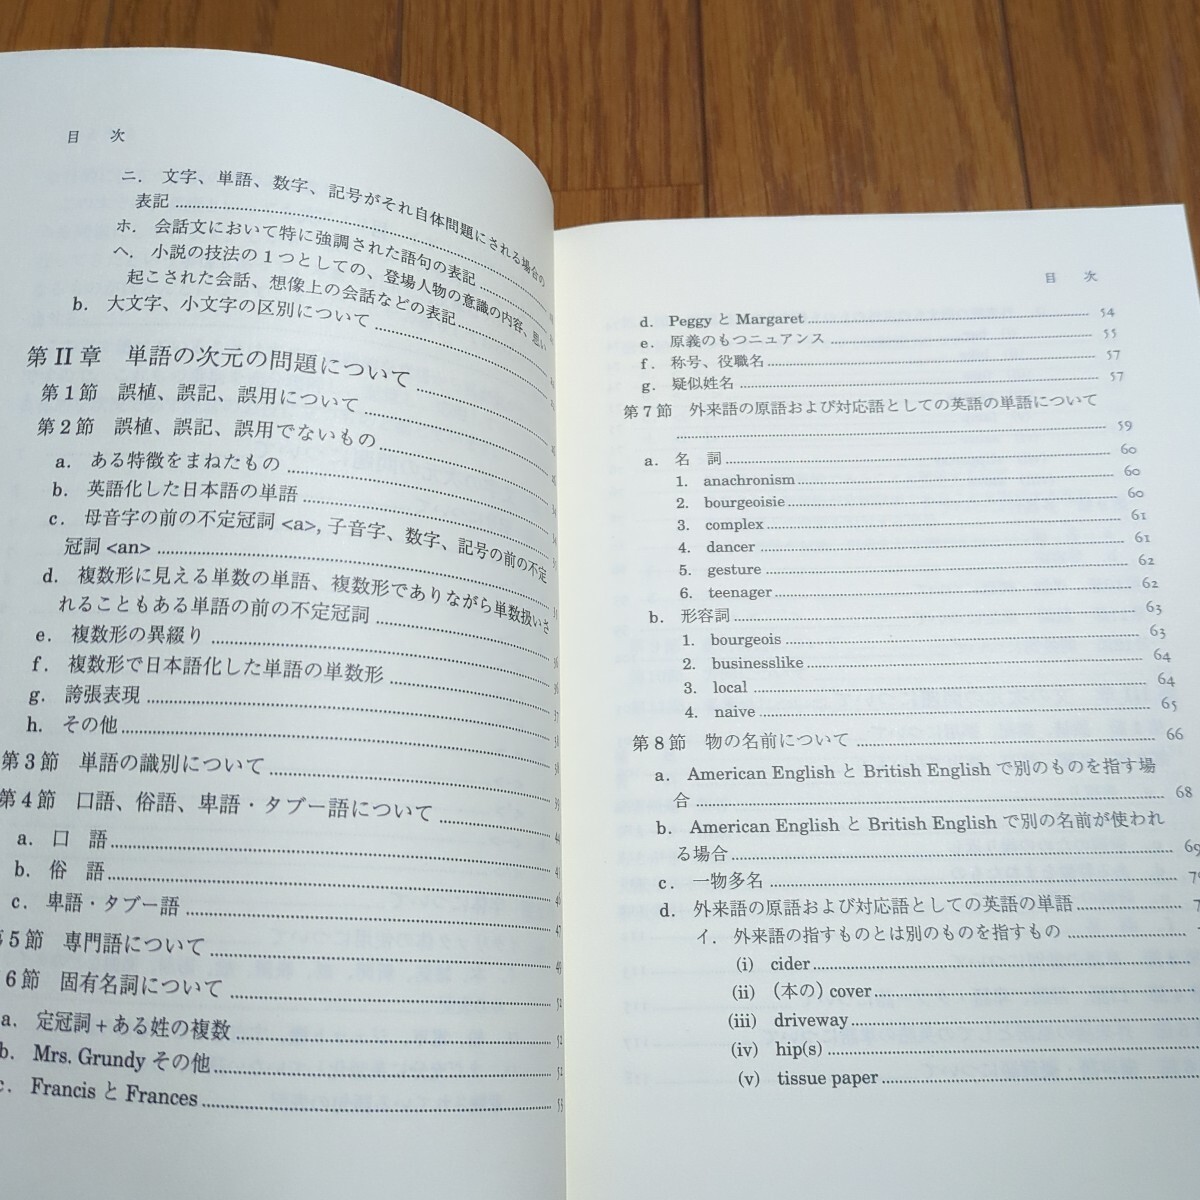 目 次
ニ. 文字、単語、数字、記号がそれ自体問題にされる場合の
表記
ホ. 会話文において特に強調された語句の表記
ヘ. 小説の技法の1つとしての、登場人物の意識の内容、思い
起こされた会話、想像上の会話などの表記
b. 大文字、小文字の区別について
第II章 単語の次元の問題について
第1節 誤植、誤記、誤用について
第2節 誤植、誤記、誤用でないもの
a. ある特徴をまねたもの
b. 英語化した日本語の単語
c. 母音字の前の不定冠詞<a>, 子音字、数字、記号の前の不定
冠詞<an>
d. 複数形に見える単数の単語、複数形でありながら単数扱いさ
れることもある単語の前の不定冠詞
e. 複数形の異綴り
f. 複数形で日本語化した単語の単数形
g. 誇張表現 37
h. その他
第3節 単語の識別について
第4節 口語、俗語、卑語・タブー語について
a. 口 語
b. 俗 語
c. 卑語・タブー語 47
第5節 専門語について 49
6節 固有名詞について 52
a. 定冠詞+ある姓の複数 52
b. Mrs. Grundy その他 52
c. Francis と Frances 53
目 次
d. Peggy と Margaret 54
e. 原義のもつニュアンス 55
f. 称号、役職名 57
g. 疑似姓名 57
第7節 外来語の原語および対応語としての英語の単語について
59
a. 名 詞 60
1. anachronism 60
2. bourgeoisie 60
3. complex 61
4. dancer 61
5. gesture 62
6. teenager 62
b. 形容詞 63
1. bourgeois 63
2. businesslike 64
3. local 64
4. naive 65
第8節 物の名前について 66
a. American English と British English で別のものを指す場
合 68
b. American English と British English で別の名前が使われ
る場合 69
c. 一物多名
d. 外来語の原語および対応語としての英語の単語
イ. 外来語の指すものとは別のものを指すもの
(i) cider
(ii) (本の) cover
(iii) driveway
(iv) hip(s)
(v) tissue paper